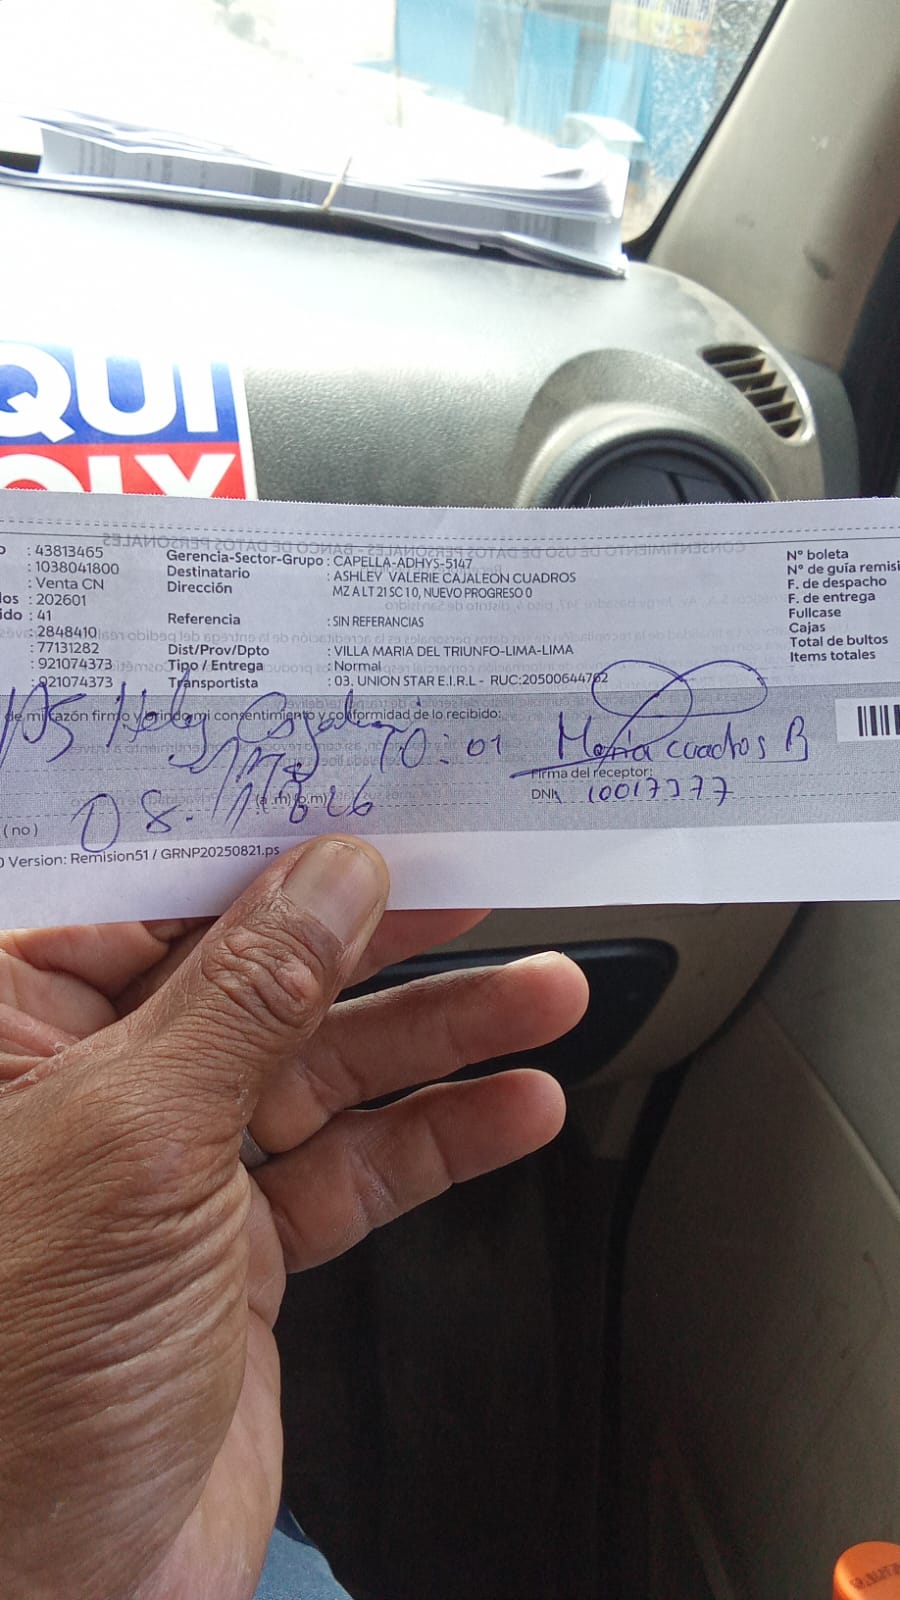 QUI
OLY
CONSENTIMIENTO DE USO DE DATOS PERSONALES - BANCO DE DATOS PERSONALES
: 43813465
: 1038041800
: Venta CN
os : 202601
ido : 41
: 2848410
: 77131282
: 921074373
: 921074373
Gerencia-Sector-Grupo : CAPELLA-ADHYS-5147
Destinatario : ASHLEY VALERIE CAJALEON CUADROS
Dirección MZ A LT 21 SC 1 0, NUEVO PROGRESO 0
Referencia : SIN REFERANCIAS
Dist/Prov/Dpto : VILLA MARIA DEL TRIUNFO-LIMA-LIMA
Tipo / Entrega : Normal
Transportista : 03. UNION STAR E.I.R.L - RUC:20500644762
N° boleta
N° de guía remisi
F. de despacho
F. de entrega
Fullcase
Cajas
Total de bultos
Items totales
de mi razón firmo y brindo mi consentimiento y conformidad de lo recibido:
10:01
María cuadros B
Firma del receptor:
DNI: 10017377
(a .m) (p.m)
08.
(no)
Version: Remision51 / GRNP20250821.ps